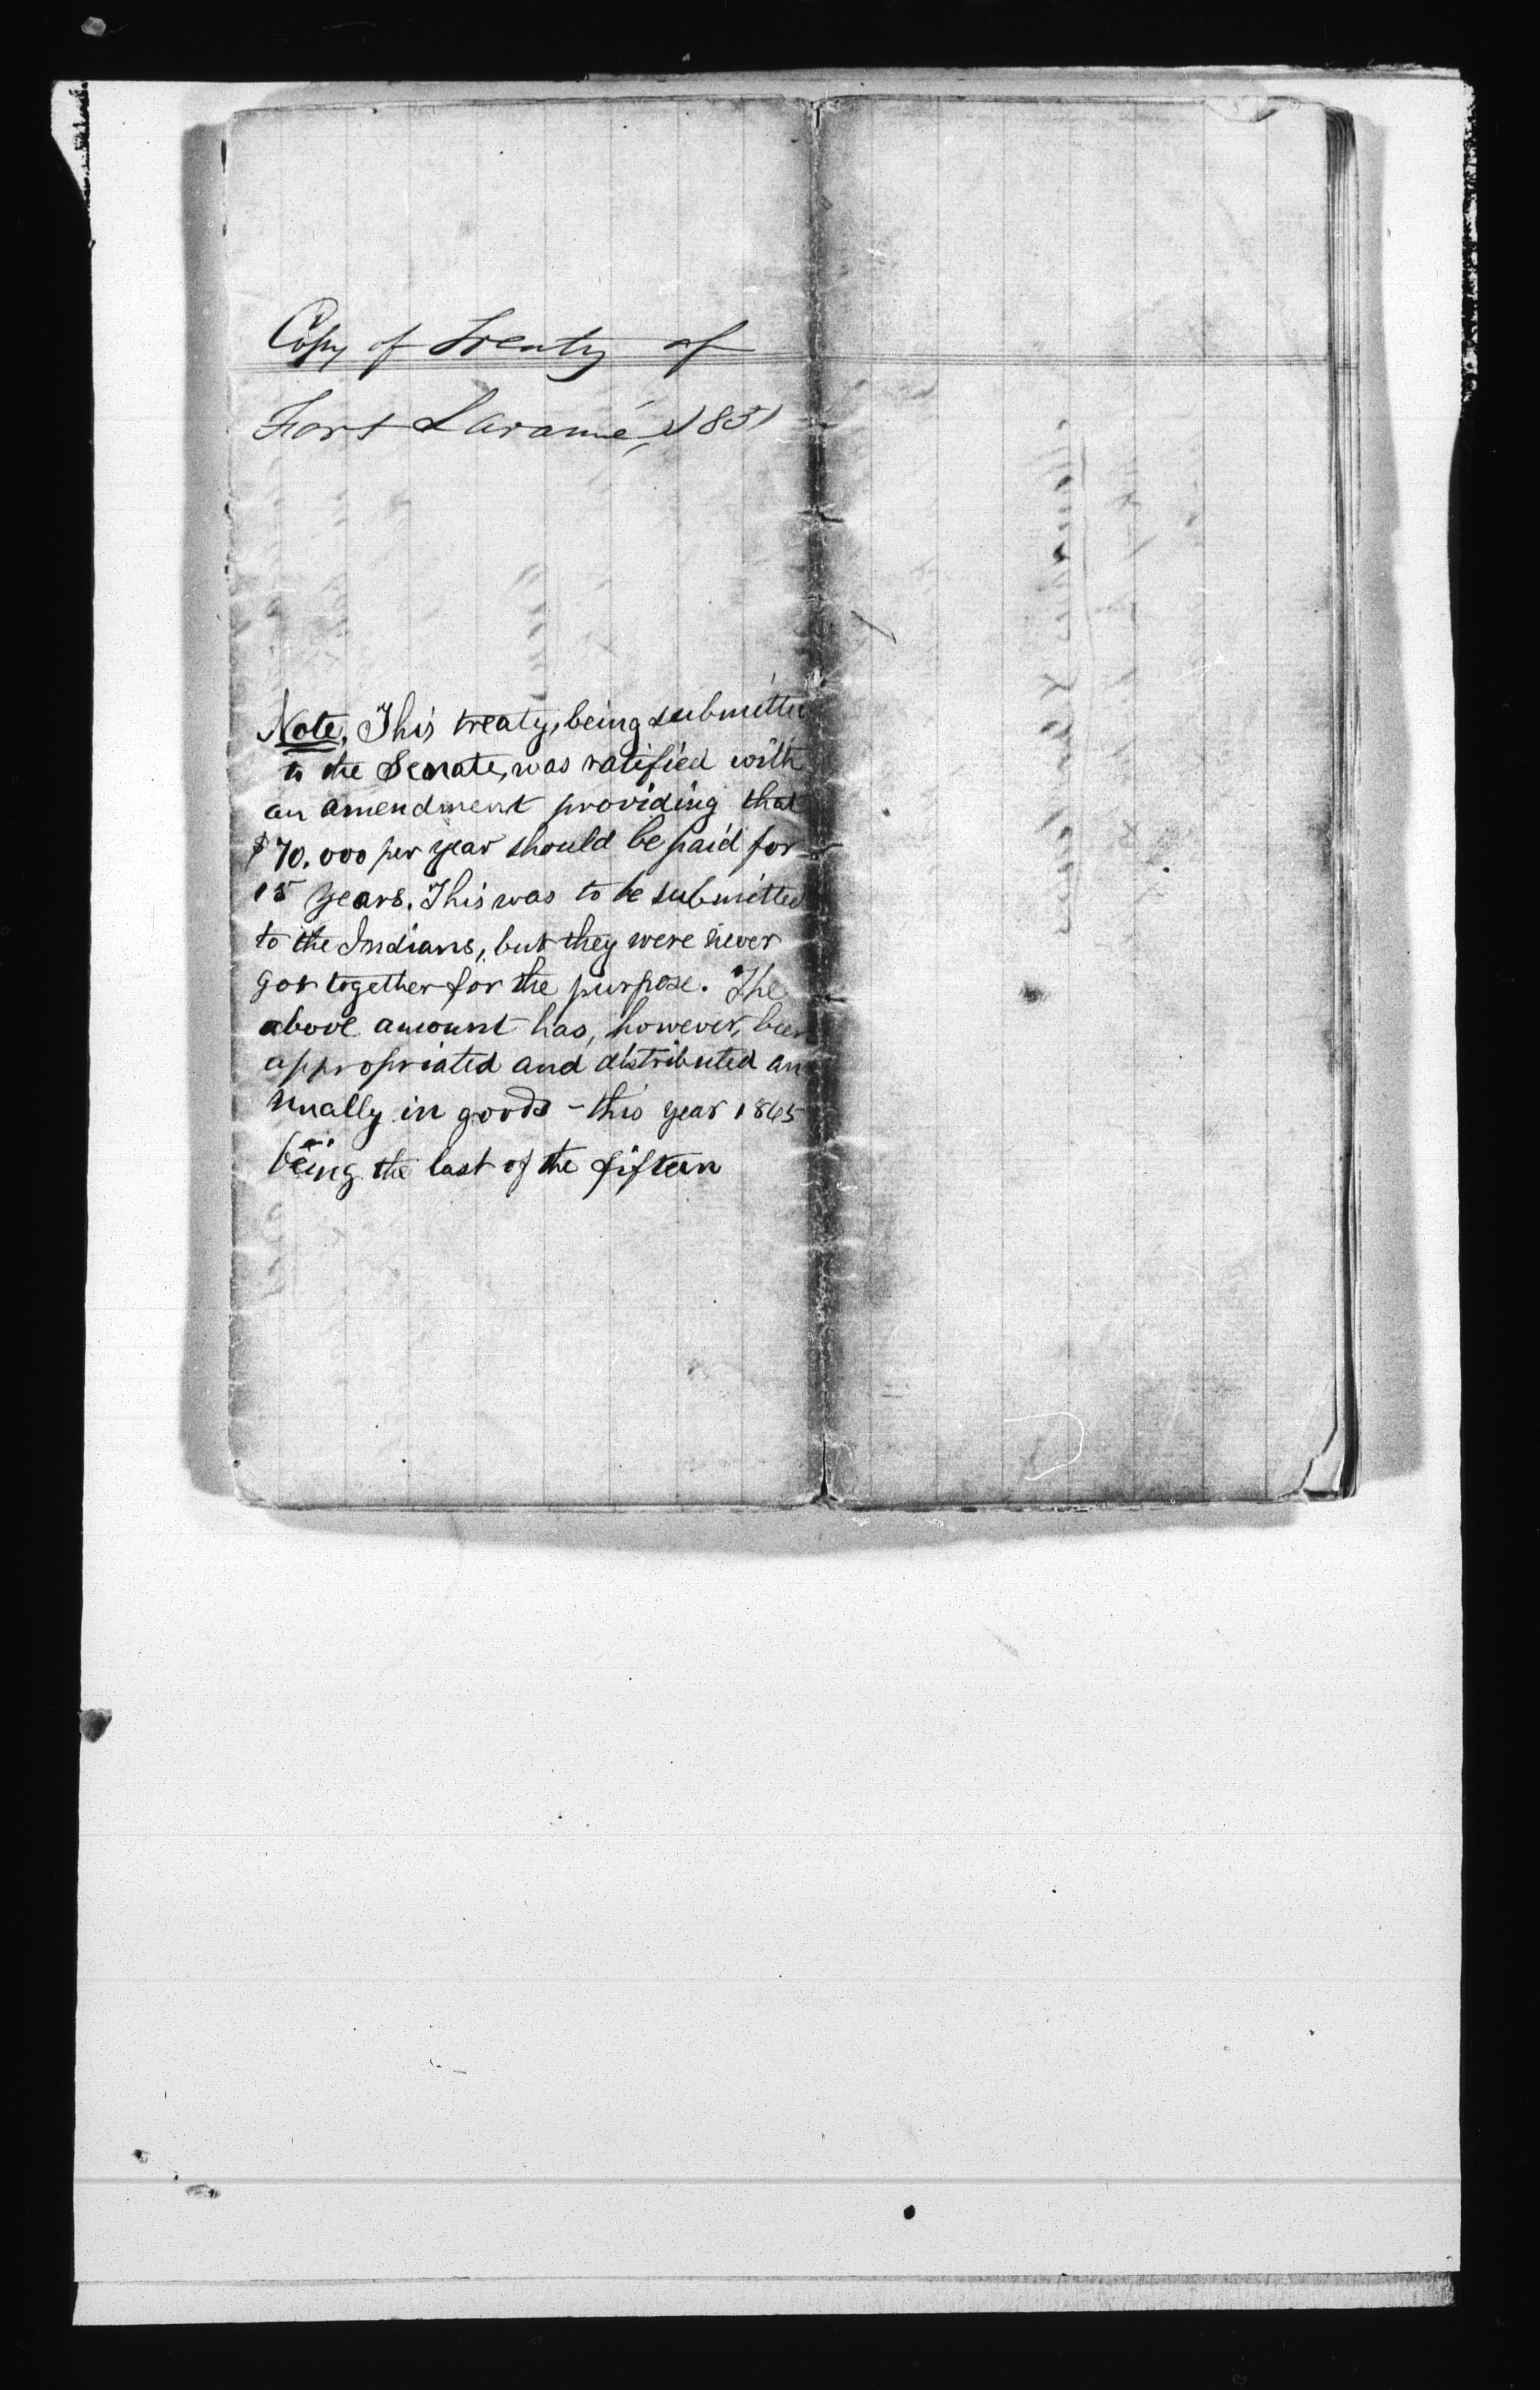 Copy of Treaty of
Fort Laramié, 1851
Note. This treaty, being submitte
to the Senate, was ratified with
an amendment providing that
$70.000 per year should be paid for
15 years. This was to be submitted
to the Indians, but they were never
got together for the purpose. The
above amount has, however, been
appropriated and distributed an
nually in goods - this year 1865
being the last of the fifteen